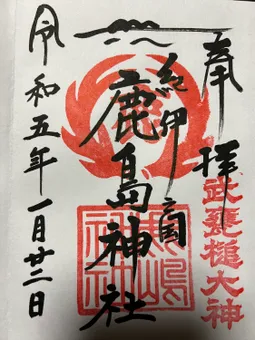 奉拝
武甕槌大神
紀伊国
鹿島神社
鹿嶋神社
令和五年一月廿二日